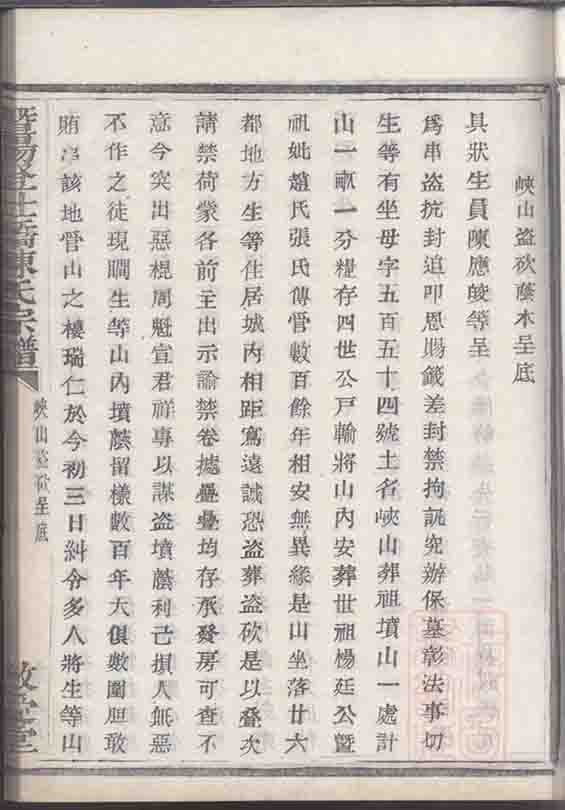 峽山盜砍蔭木呈底
具狀生員陳應畯等呈
爲串盜抗封追叩恩賜籤差封禁拘訊究辦保墓彰法事切
生等有坐毋字五百五十四號土名峽山葬祖墳山一處計
山一畝一分糧存四世公戶輸將山內安葬世祖楊廷公暨
祖妣趙氏張氏傳管數百餘年相安無異緣是山坐落廿六
都地方生等住居城內相距寫遠誠恐盜葬盜砍是以叠次
請禁荷蒙各前主出示諭禁卷據疊疊均存承發房可查不
意今突出惡棍周魁宣君祥專以謀盜墳蔭利己損人無惡
不作之徒現瞷生等山內墳蔭留樣數百年大俱數圍胆敢
賄串該地管山之樓瑞仁於今初三日糾令多人將生等山
暨陽登仕橋陳氏宗譜
峽山盜砍呈底
敦堂